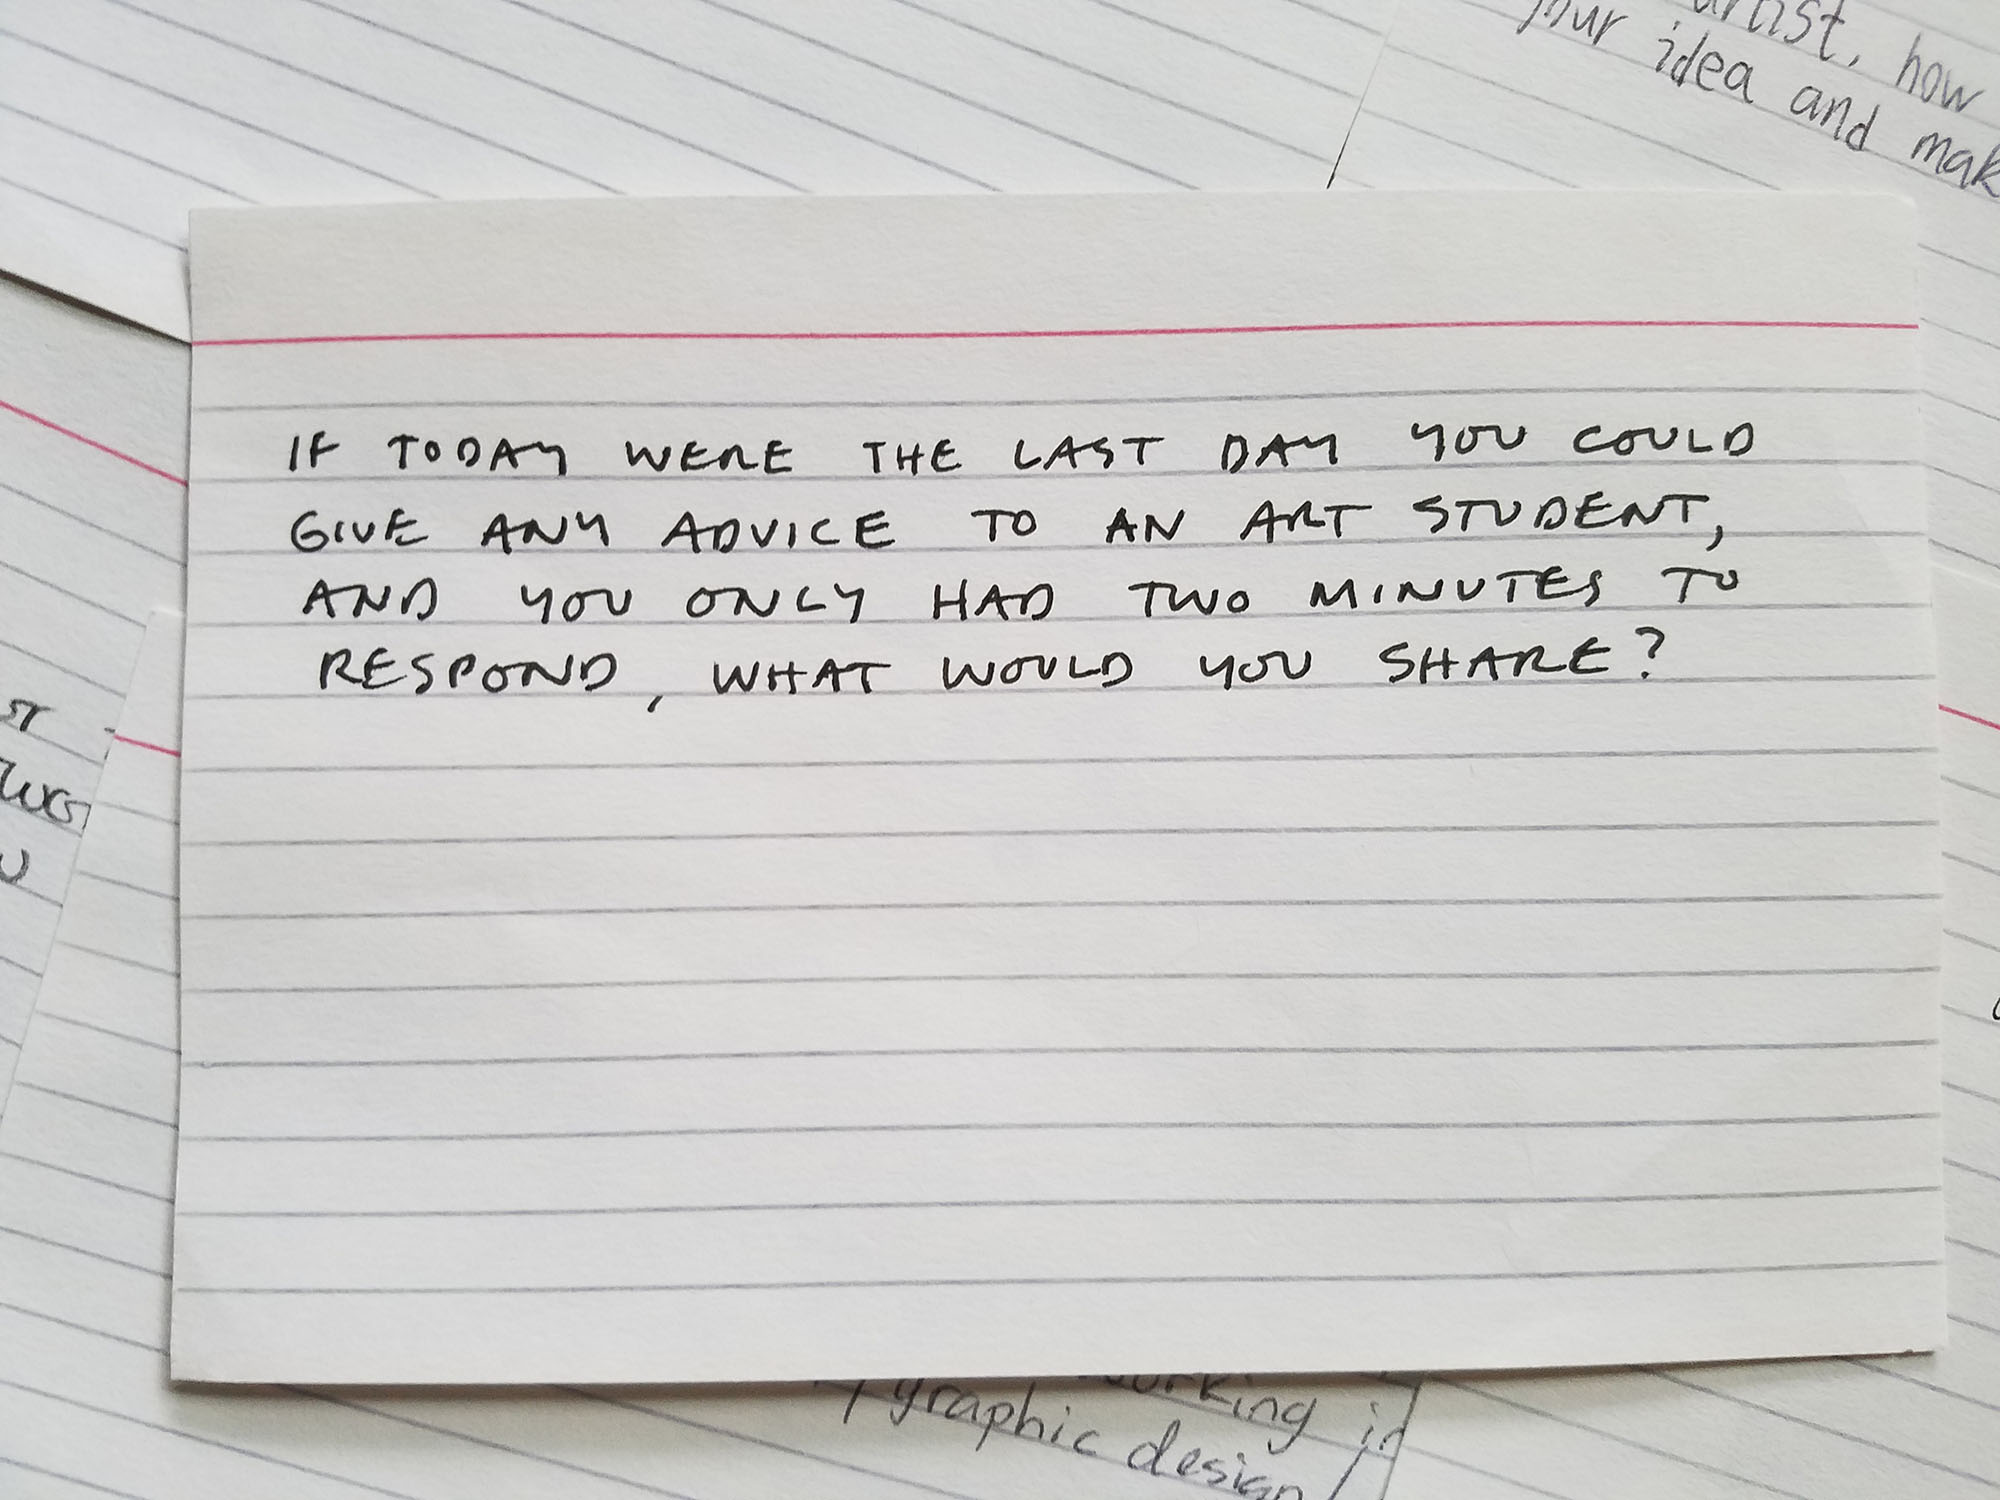 artist, how
your idea and mak
IF TODAY WERE THE LAST DAY YOU COULD
GIVE ANY ADVICE TO AN ART STUDENT,
AND YOU ONLY HAD TWO MINUTES TO
RESPOND, WHAT WOULD YOU SHARE?
working in
graphic design